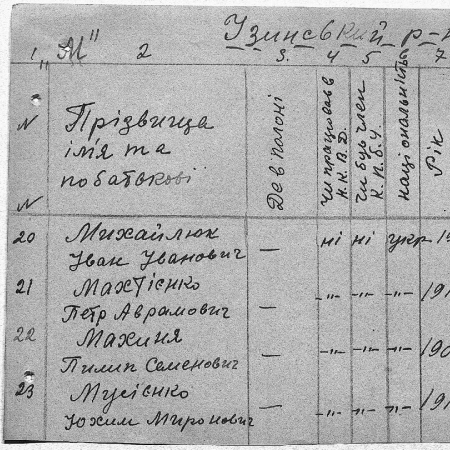 Узинський р-н
1 „М" 2 3. 4 5 6 7
№ Прізвища ім'я та по батькові
Де в полоні
Чи працював в Н.К.В.Д.
Чи був член К.П.б.У.
національність
Рік
№
20 Михайлюк — ні ні укр 19
Іван Іванович
21 Махтієнко
Петр Аврамович — -"- -"- -"- 191
22 Махиня
Пилип Семенович — -"- -"- -"- 190
23 Мусієнко
Юхим Миронович — -"- -"- -"- 191